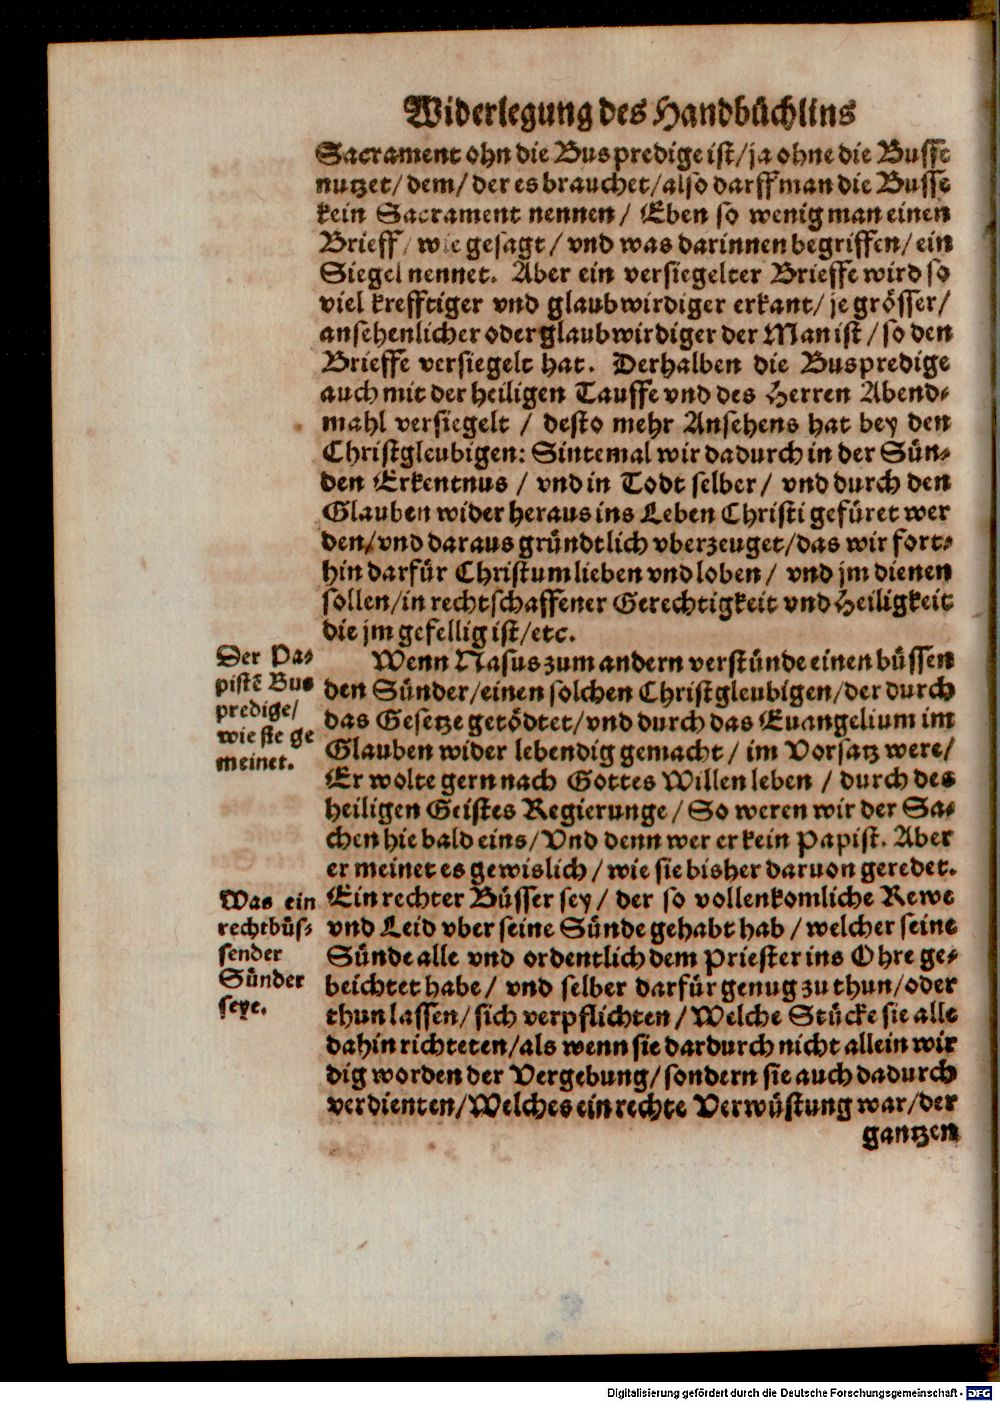 Widerlegung des Handbüchlins
Sacrament ohn die Buspredige ist/ja ohne die Busse
nutzet/dem/der es brauchet/also darff man die Busse
kein Sacrament nennen/Eben so wenig man einen
Brieff/wie gesagt/vnd was darinnen begriffen/ein
Siegel nennet. Aber ein versiegelter Brieffe wird so
viel krefftiger vnd glaubwirdiger erkant/je grösser/
ansehenlicher oder glaubwirdiger der Man ist/so den
Brieffe versiegelt hat. Derhalben die Buspredige
auch mit der heiligen Tauffe vnd des Herren Abend-
mahl versiegelt/desto mehr Ansehens hat bey den
Christgleubigen: Sintemal wir dadurch in der Sün-
den Erkentnus/vnd in Todt selber/vnd durch den
Glauben wider heraus ins Leben Christi gefüret wer
den/vnd daraus gründtlich vberzeuget/das wir fort-
hin darfür Christum lieben vnd loben/vnd jm dienen
sollen/in rechtschaffener Gerechtigkeit vnd Heiligkeit
die jm gefellig ist/etc.
Der Pa-
pistē Bus
predige/
wie sie ge
meinet.
Wenn Nasus zum andern verstünde einen büssen
den Sünder/einen solchen Christgleubigen/der durch
das Gesetze getödtet/vnd durch das Euangelium im
Glauben wider lebendig gemacht/im Vorsatz were/
Er wolte gern nach Gottes Willen leben/durch des
heiligen Geistes Regierunge/So weren wir der Sa-
chen hie bald eins/Vnd denn wer er kein Papist. Aber
er meinet es gewislich/wie sie bisher daruon geredet.
Was ein
rechtbüs-
sender
Sünder
seye.
Ein rechter Büsser sey/der so vollenkomliche Rewe
vnd Leid vber seine Sünde gehabt hab/welcher seine
Sünde alle vnd ordentlich dem Priester ins Ohre ge-
beichtet habe/vnd selber darfür genug zu thun/oder
thun lassen/sich verpflichten/Welche Stücke sie alle
dahin richteten/als wenn sie dardurch nicht allein wir
dig worden der Vergebung/sondern sie auch dadurch
verdienten/Welches ein rechte Verwüstung war/der
gantzen
Digitalisierung gefördert durch die Deutsche Forschungsgemeinschaft - DFG